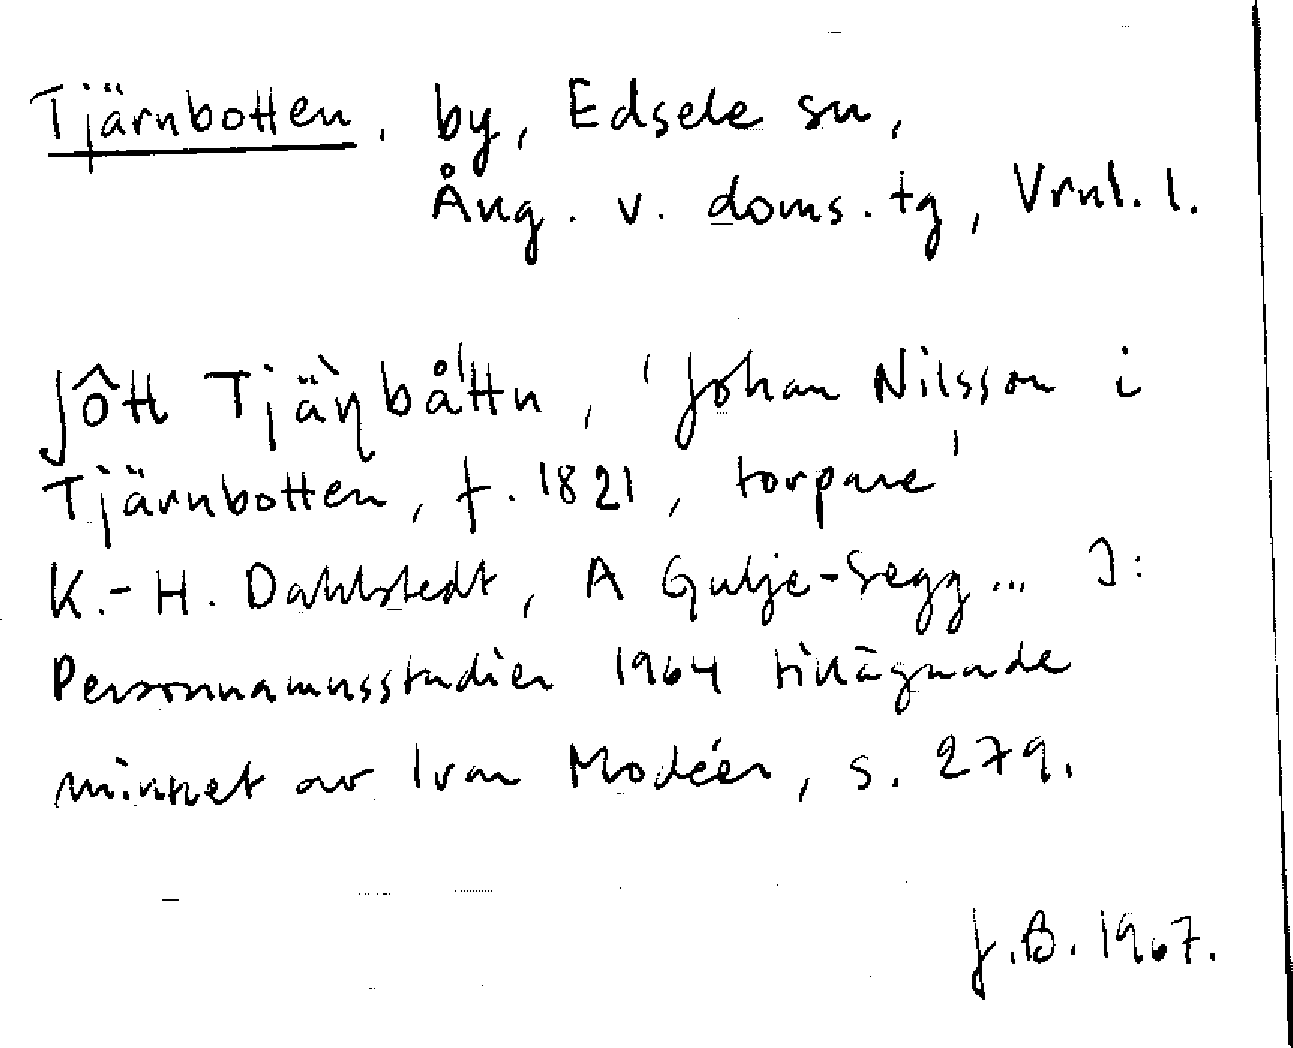 Tjärnbotten, by, Edsele sn,
Ång. v. doms. tg, Vrnl. l.
Jôtt Tjäǹbå'ttn, 'Johan Nilsson i
Tjärnbotten, f. 1821, torpare'
K.-H. Dahlstedt, A Gulje-Segg... I:
Personnamnsstudier 1964 tillägnade
minnet av Ivar Modéer, s. 279.
J.B. 1967.